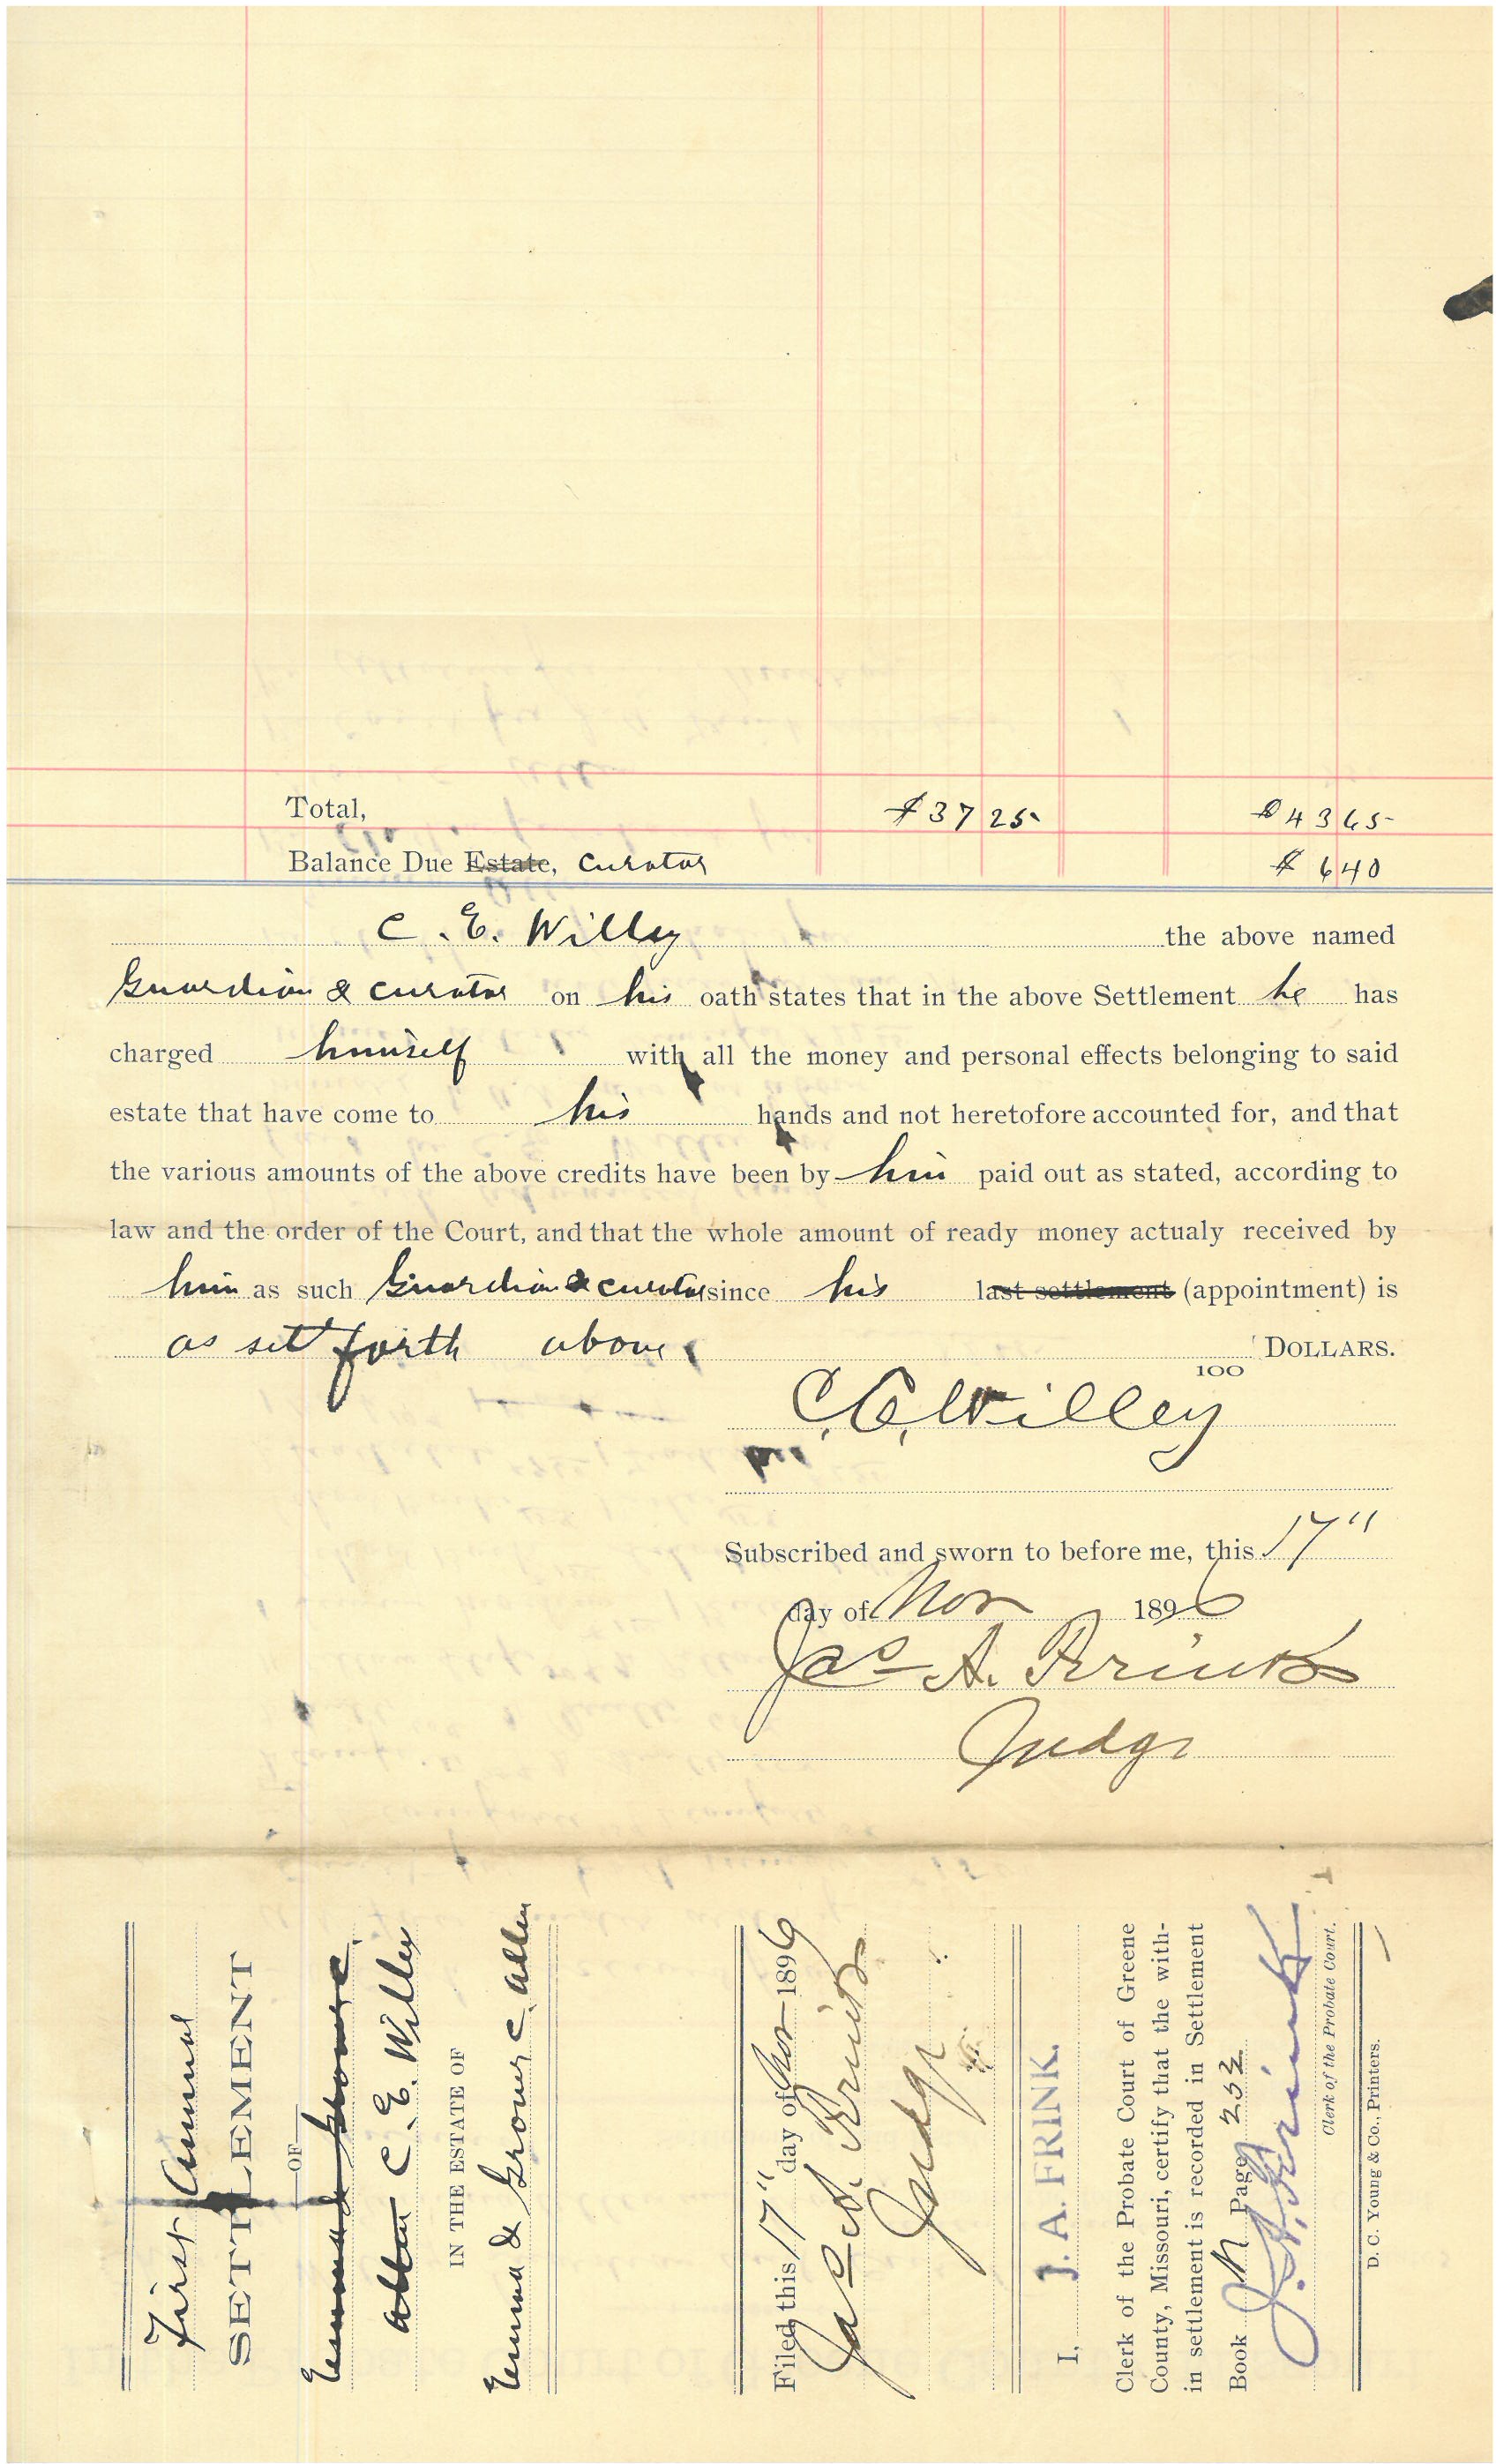 Total, $37 25 $43 65
Balance Due Estate, Curator $ 6 40
C. E. Willey the above named
Guardian & curator on his oath states that in the above Settlement he has
charged himself with all the money and personal effects belonging to said
estate that have come to his hands and not heretofore accounted for, and that
the various amounts of the above credits have been by him paid out as stated, according to
law and the order of the Court, and that the whole amount of ready money actualy received by
him as such Guardian & curator since his last settlement (appointment) is
as set forth above. DOLLARS.
100
C. E. Willey
Subscribed and sworn to before me, this 17"
day of Nov 1896
Jas A. Frink
Judge
First Annual
SETTLEMENT
OF
Emma & Grover C.
Allen C. E. Willey
IN THE ESTATE OF
Emma & Grover C. Allen
Filed this 17" day of Nov 1896
Jas A. Frink
Judge
I, J. A. FRINK.
Clerk of the Probate Court of Greene
County, Missouri, certify that the with-
in settlement is recorded in Settlement
Book M Page 232
J. A. Frink
Clerk of the Probate Court.
D. C. Young & Co., Printers.